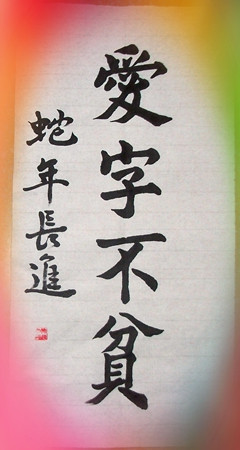 愛字不貧
蛇年長進